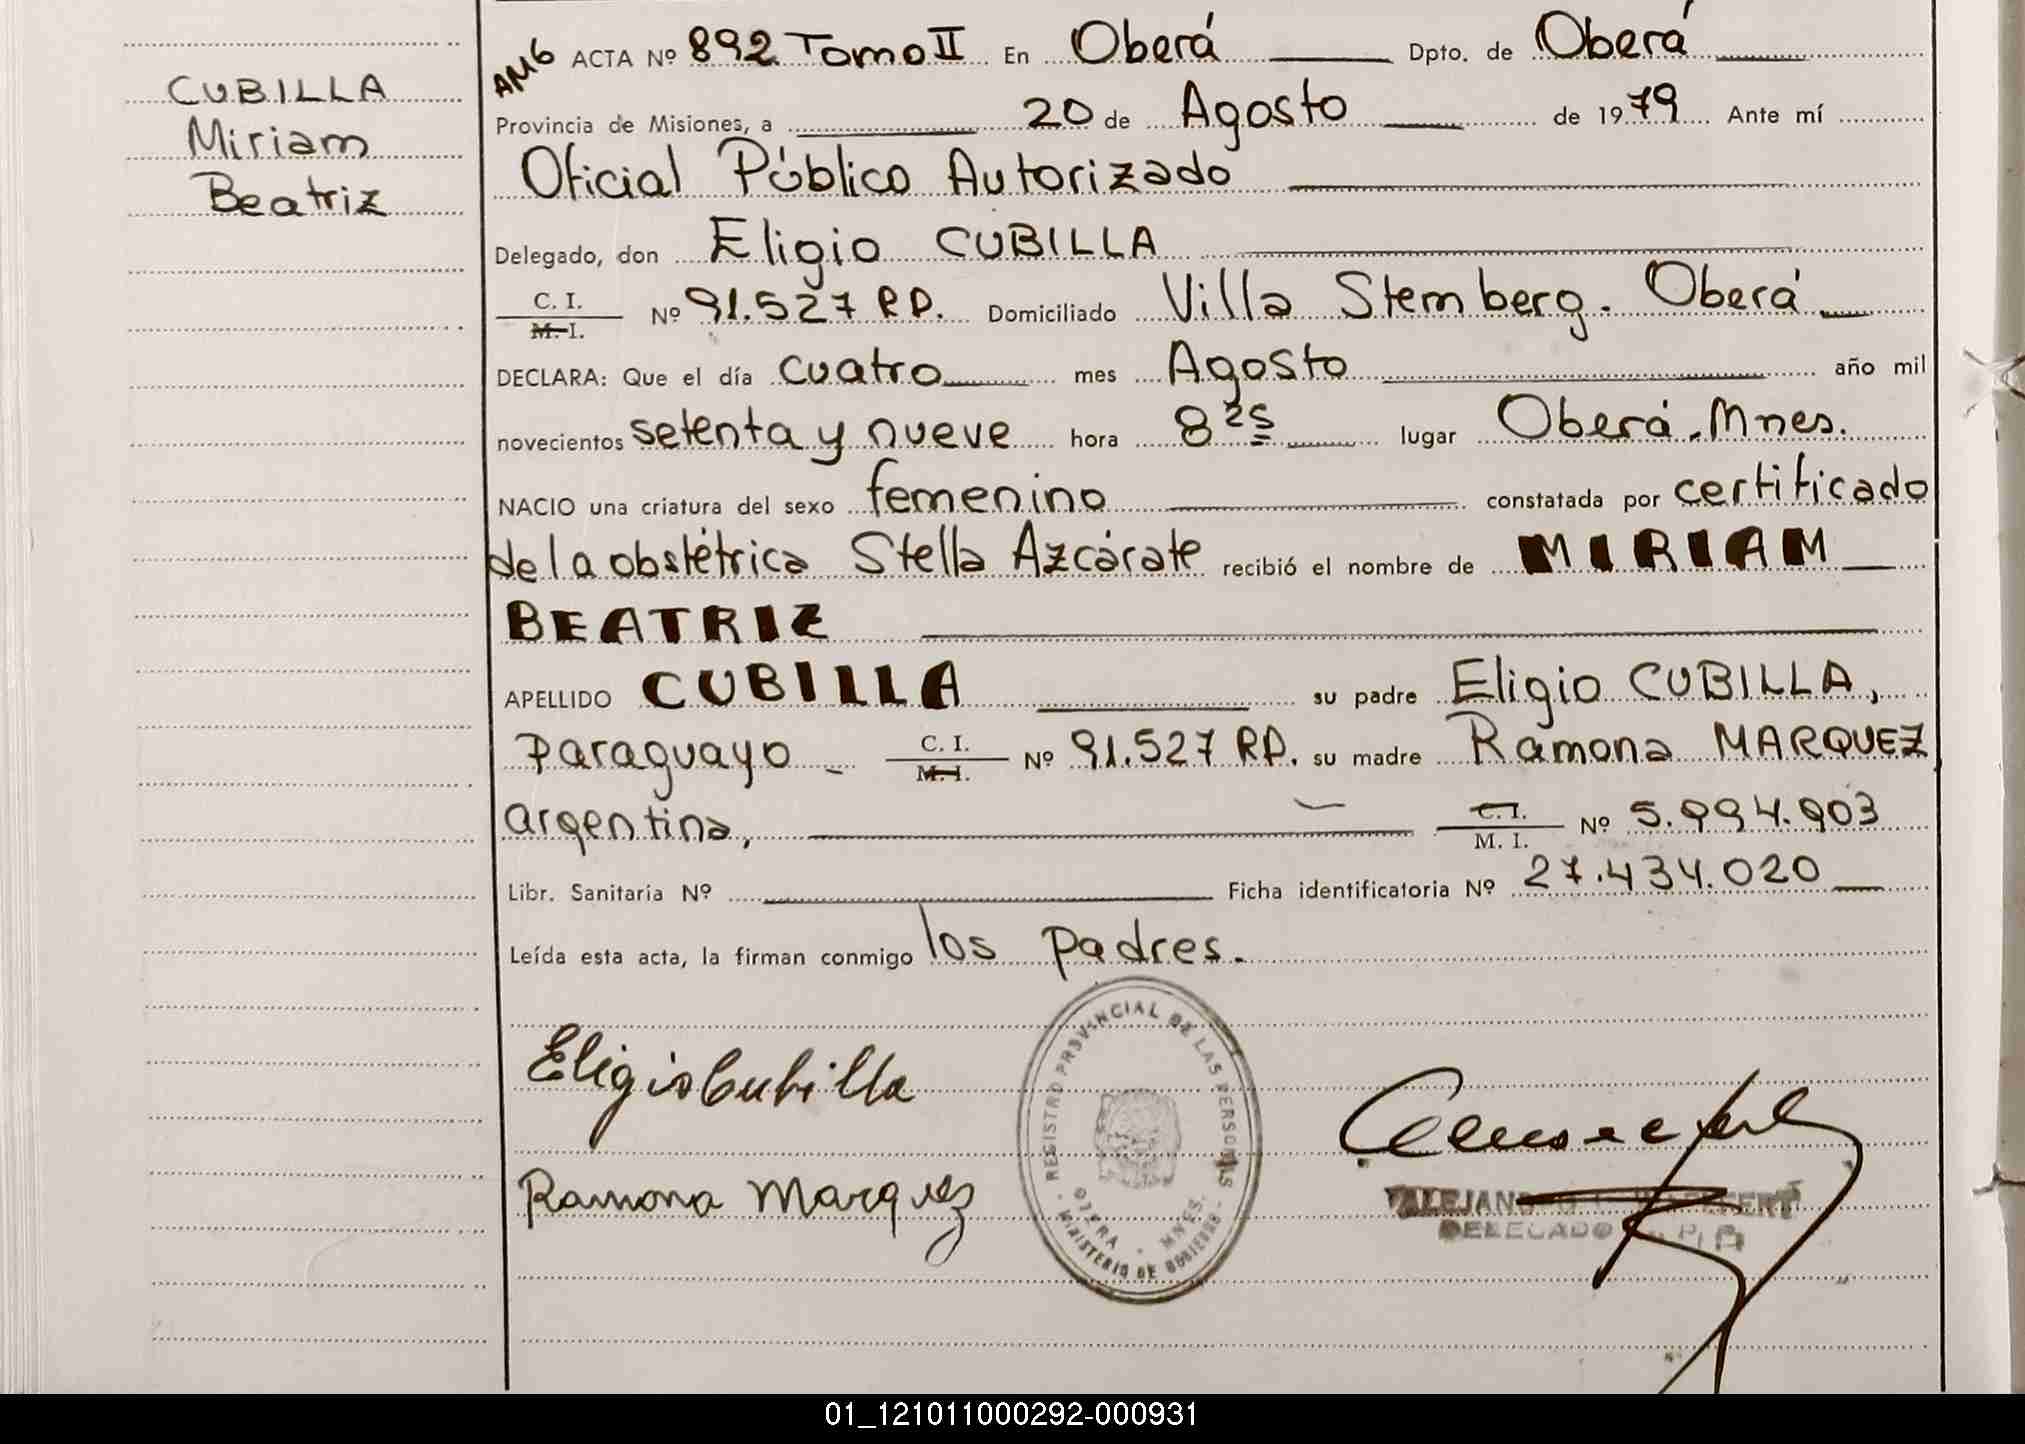 CUBILLA
Miriam
Beatriz
AMb ACTA Nº 892 Tomo II En Oberá Dpto. de Oberá
Provincia de Misiones, a 20 de Agosto de 1979 Ante mí
Oficial Público Autorizado
Delegado, don Eligio CUBILLA
C. I.
M. I. Nº 91.527 RP. Domiciliado Villa Stemberg. Oberá
DECLARA: Que el día cuatro mes Agosto año mil
novecientos setenta y nueve hora 8 25 lugar Oberá. Mnes.
NACIO una criatura del sexo femenino constatada por certificado
de la obstétrica Stella Azcárate recibió el nombre de MIRIAM
BEATRIZ
APELLIDO CUBILLA su padre Eligio CUBILLA,
paraguayo C. I.
M. I. Nº 91.527 RP. su madre Ramona MARQUEZ
argentina, C. I.
M. I. Nº 5.994.903
Libr. Sanitaria Nº Ficha identificatoria Nº 27.434.020
Leída esta acta, la firman conmigo los padres.
Eligio Cubilla
Ramona Marquez
REGISTRO PROVINCIAL DE LAS PERSONAS
OBERA - MNES.
MINISTERIO DE GOBIERNO
DELEGADO
01_121011000292-000931